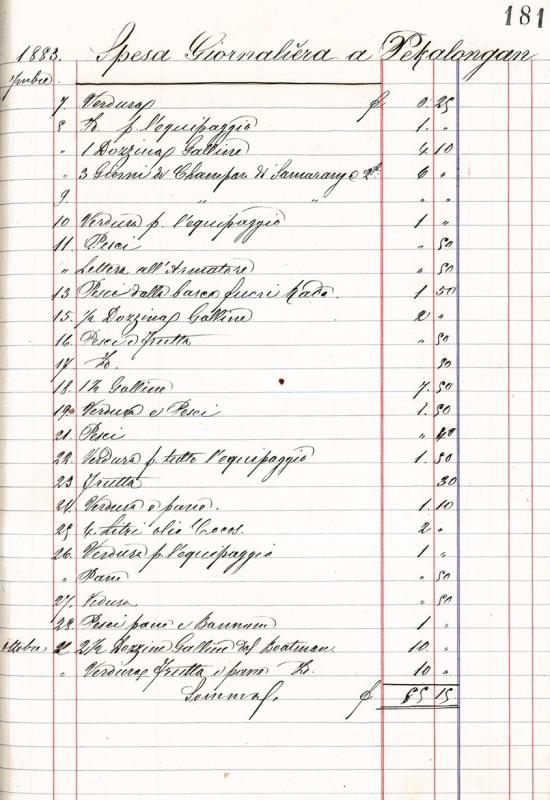 181
1883. Spesa Giornaliera a Pekalongan
7. Verdura f 0.25
8 p. l'equipaggio 1. "
" 1 Dozzina Galline 4.10
" 3 Giorni di Champan di Samarang a 2f. 6 "
9. " " " "
10 Verdura p. l'equipaggio 1 "
11. Pesci " 50
" Lettera all'Armatore " 50
13 Pesci dalla barca fuori Rada. 1 50
15. 1/2 Dozzina Galline 2 "
16. Pesci e frutta " 50
17. 50
18. 12 Galline 7.50
19. Verdura e Pesci 1.50
21. Pesci " 40
22. Verdura p. tutto l'equipaggio 1.50
23 frutta 30
24. Verdura e pane. 1.10
25 4. Litri olio Cocos. 2 "
26. Verdura p. l'equipaggio 1 "
" Pane " 50
27. Vedura " 50
28. Pesci pane e 1 "
Ottobre 2 1/2 Dozzine Galline dal Boatman. 10. "
" Verdura frutta e pane 10 "
Somma f 15